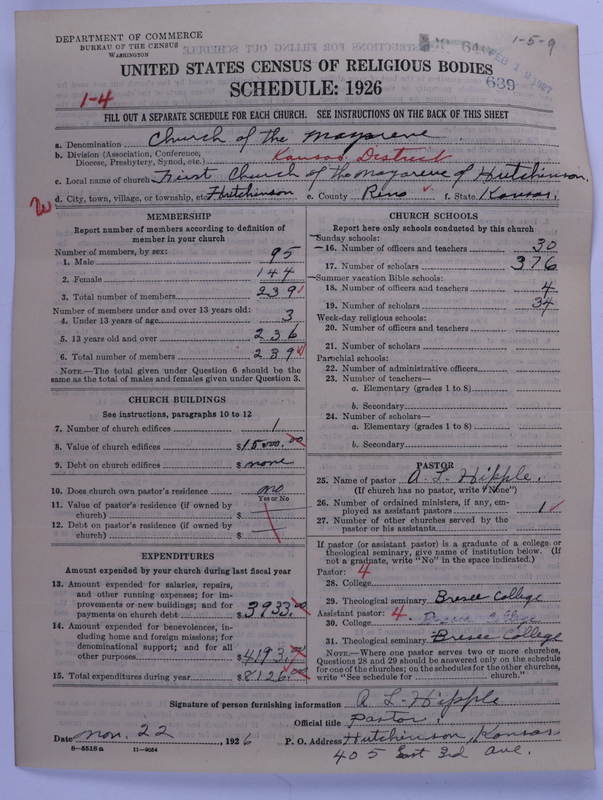 DEPARTMENT OF COMMERCE
BUREAU OF THE CENSUS
WASHINGTON
1-5-9
FEB 1 2 1927
639
UNITED STATES CENSUS OF RELIGIOUS BODIES
SCHEDULE: 1926
1-4
FILL OUT A SEPARATE SCHEDULE FOR EACH CHURCH. SEE INSTRUCTIONS ON THE BACK OF THIS SHEET
a. Denomination Church of the Nazarene
b. Division (Association, Conference, Diocese, Presbytery, Synod, etc.) Kansas District
c. Local name of church First Church of the Nazarene of Hutchinson.
d. City, town, village, or township, etc. Hutchinson e. County Reno f. State Kansas.
MEMBERSHIP
Report number of members according to definition of
member in your church
Number of members, by sex:
1. Male 95
2. Female 144
3. Total number of members 239
Number of members under and over 13 years old:
4. Under 13 years of age 3
5. 13 years old and over 236
6. Total number of members 289
NOTE.—The total given under Question 6 should be the
same as the total of males and females given under Question 3.
CHURCH BUILDINGS
See instructions, paragraphs 10 to 12
7. Number of church edifices 1
8. Value of church edifices $15000.00
9. Debt on church edifices $ none
10. Does church own pastor's residence no
Yes or No
11. Value of pastor's residence (if owned by
church) $
12. Debt on pastor's residence (if owned by
church) $
EXPENDITURES
Amount expended by church during last fiscal year
13. Amount expended for salaries, repairs,
and other running expenses; for im-
provements or new buildings; and for
payments on church debt $3933.00
14. Amount expended for benevolences, in-
cluding home and foreign missions; for
denominational support; and for all
other purposes $4193.00
15. Total expenditures during year $8126.00
CHURCH SCHOOLS
Report here only schools conducted by this church
Sunday schools:
16. Number of officers and teachers 30
17. Number of scholars 376
Summer vacation Bible schools:
18. Number of officers and teachers 4
19. Number of scholars 34
Week-day religious schools:
20. Number of officers and teachers
21. Number of scholars
Parochial schools:
22. Number of administrative officers
23. Number of teachers—
a. Elementary (grades 1 to 8)
b. Secondary
24. Number of scholars—
a. Elementary (grades 1 to 8)
b. Secondary
PASTOR
25. Name of pastor A. L. Hipple.
(If church has no pastor, write "None")
26. Number of ordained ministers, if any, em-
ployed as assistant pastors 1
27. Number of other churches served by the
pastor or his assistants
If pastor (or assistant pastor) is a graduate of a college or
theological seminary, give name of institution below. (If
not a graduate, write "No" in the space indicated.)
Pastor: 4
28. College
29. Theological seminary Bresee College
Assistant pastor: 4
30. College Bresee College
31. Theological seminary Bresee College
NOTE.—Where one pastor serves two or more churches,
Questions 28 and 29 should be answered only on the schedule
for one of the churches; on the schedules for the other churches,
write "See schedule for church."
Signature of person furnishing information A L Hipple
Official title Pastor,
Date Nov. 22, 1926 P. O. Address Hutchinson, Kansas
405 East 3rd Ave.
8-5518a 11-9054